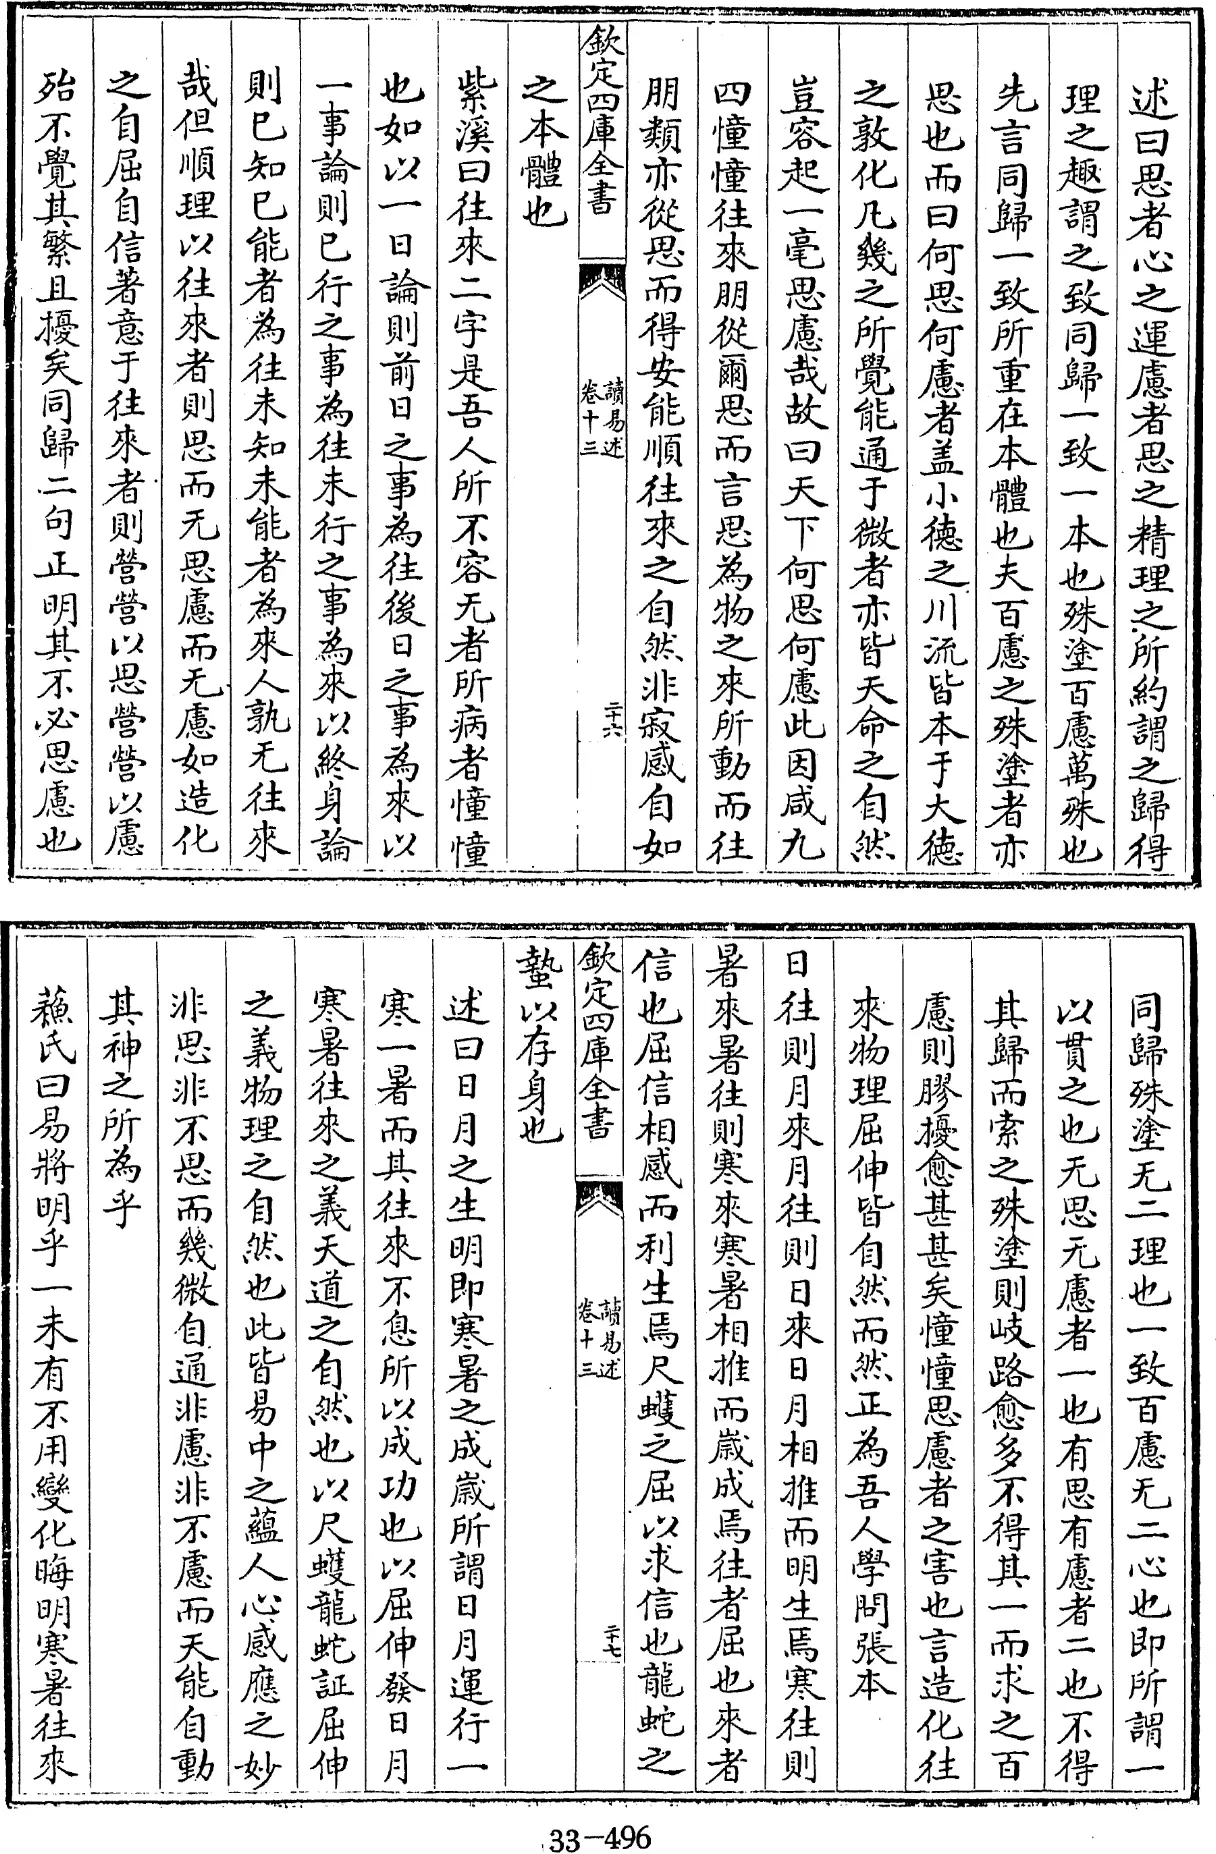 述曰思者心之運慮者思之精理之所約謂之歸得
理之趣謂之致同歸一致一本也殊塗百慮萬殊也
先言同歸一致所重在本體也夫百慮之殊塗者亦
思也而曰何思何慮者盖小德之川流皆本于大德
之敦化凡幾之所覺能通于微者亦皆天命之自然
豈容起一毫思慮哉故曰天下何思何慮此因咸九
四憧憧往來朋從爾思而言思為物之來所動而往
朋類亦從思而得安能順往來之自然非寂感自如
欽定四庫全書
讀易述
卷十三
二十六
之本體也
紫溪曰往來二字是吾人所不容无者所病者憧憧
也如以一日論則前日之事為往後日之事為來以
一事論則已行之事為往未行之事為來以終身論
則已知已能者為往未知未能者為來人孰无往來
哉但順理以往來者則思而无思慮而无慮如造化
之自屈自信著意于往來者則營營以思營營以慮
殆不覺其繁且擾矣同歸二句正明其不必思慮也
同歸殊塗无二理也一致百慮无二心也即所謂一
以貫之也无思无慮者一也有思有慮者二也不得
其歸而索之殊塗則岐路愈多不得其一而求之百
慮則膠擾愈甚甚矣憧憧思慮者之害也言造化往
來物理屈伸皆自然而然正為吾人學問張本
日往則月來月往則日來日月相推而明生焉寒往則
暑來暑往則寒來寒暑相推而歲成焉往者屈也來者
信也屈信相感而利生焉尺蠖之屈以求信也龍蛇之
欽定四庫全書
讀易述
卷十三
二十七
蟄以存身也
述曰日月之生明即寒暑之成歲所謂日月運行一
寒一暑而其往來不息所以成功也以屈伸發日月
寒暑往來之義天道之自然也以尺蠖龍蛇証屈伸
之義物理之自然也此皆易中之蘊人心感應之妙
非思非不思而幾微自通非慮非不慮而天能自動
其神之所為乎
蘓氏曰易將明乎一未有不用變化晦明寒暑往來
33-496